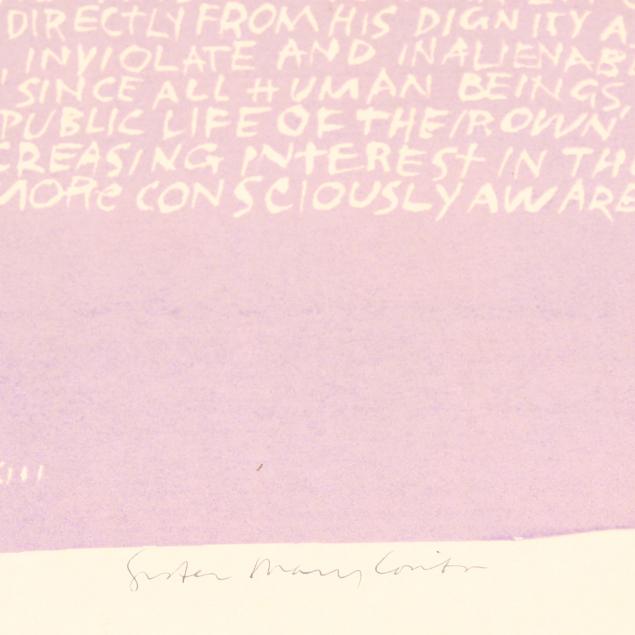 DIRECTLY FROM HIS DIGNITY A
INVIOLATE AND INALIENAB
SINCE ALL HUMAN BEINGS,
PUBLIC LIFE OF THEIR OWN
CREASING INTEREST IN TH
MORE CONSCIOUSLY AWARE
III
Sister Mary Corita